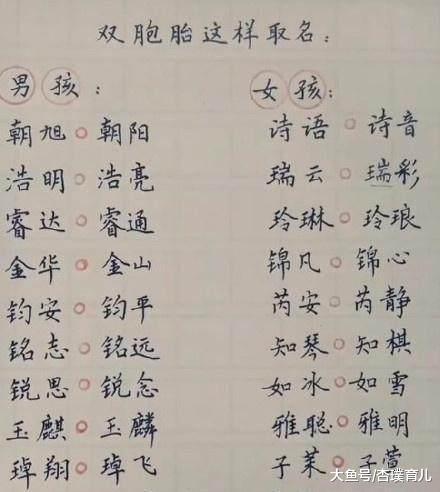 双胞胎这样取名：
男孩： 女孩：
朝旭 朝阳 诗语 诗音
浩明 浩亮 瑞云 瑞彩
睿达 睿通 玲琳 玲琅
金华 金山 锦凡 锦心
钧安 钧平 芮安 芮静
铭志 铭远 知琴 知棋
锐思 锐念 如冰 如雪
玉麒 玉麟 雅聪 雅明
琸翔 琸飞 子茱 子萱
大鱼号/杏璞育儿